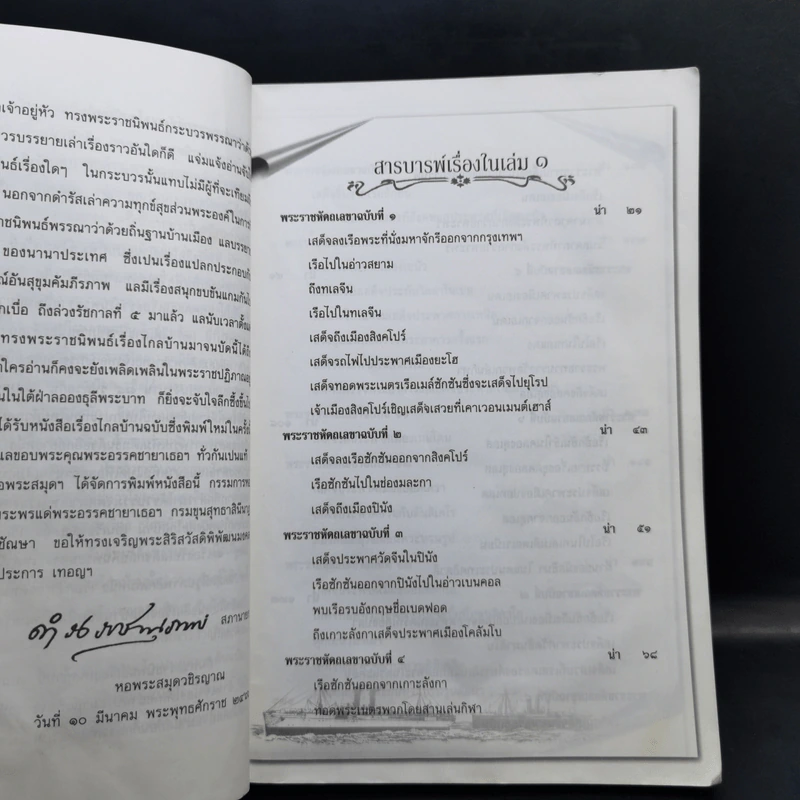 เจ้าอยู่หัว ทรงพระราชนิพนธ์กระบวรพรรณาว่าด้วย
วรบรรยายเล่าเรื่องราวอันใดก็ดี แจ่มแจ้งอ่านจับ
นธ์เรื่องใดๆ ในกระบวรนั้นแทบไม่มีผู้ที่จะเทียม
นอกจากดำรัสเล่าความทุกข์สุขส่วนพระองค์ในการ
ราชนิพนธ์พรรณาว่าด้วยถิ่นฐานบ้านเมือง แลบรรยา
ของนานาประเทศ ซึ่งเปนเรื่องแปลกประกอบ
ณ์อันสุขุมคัมภีรภาพ แลมีเรื่องสนุกขบขันแกมกัน
กเบื่อ ถึงล่วงรัชกาลที่ ๕ มาแล้ว แลนับเวลาตั้งแต่
ทรงพระราชนิพนธ์เรื่องไกลบ้านมาจนบัดนี้ได้
ใครอ่านก็คงจะยังเพลิดเพลินในพระราชปฏิภาณ
นในใต้ฝ่าลอองธุลีพระบาท ก็ยิ่งจะจับใจลึกซึ้งขึ้น
ได้รับหนังสือเรื่องไกลบ้านฉบับซึ่งพิมพ์ใหม่ในครั้ง
แลขอบพระคุณพระอรรคชายาเธอฯ ทั่วกันเปนแท้
อพระสมุดฯ ได้จัดการพิมพ์หนังสือนี้ กรรมการหอ
ะพรแด่พระอรรคชายาเธอฯ กรมขุนสุทธาสินีนาฎ
ชัณษา ขอให้ทรงเจริญพระสิริสวัสดิพิพัฒนมงคล
ประการ เทอญฯ
สภานายก
หอพระสมุดวชิรญาณ
วันที่ ๑๐ มีนาคม พระพุทธศักราช
สารบารพ์เรื่องในเล่ม ๑
พระราชหัดถเลขาฉบับที่ ๑ น่า ๒๑
เสด็จลงเรือพระที่นั่งมหาจักรีออกจากกรุงเทพฯ
เรือไปในอ่าวสยาม
ถึงทเลจีน
เรือไปในทเลจีน
เสด็จถึงเมืองสิงคโปร์
เสด็จรถไฟไปประพาศเมืองยะโฮ
เสด็จทอดพระเนตรเรือเมล์ซักซันซึ่งจะเสด็จไปยุโรป
เจ้าเมืองสิงคโปร์เชิญเสด็จเสวยที่เคาเวอนเมนต์เฮาส์
พระราชหัดถเลขาฉบับที่ ๒ น่า ๔๓
เสด็จลงเรือซักซันออกจากสิงคโปร์
เรือซักซันไปในช่องมละกา
เสด็จถึงเมืองปินัง
พระราชหัดถเลขาฉบับที่ ๓ น่า ๕๑
เสด็จประพาศวัดจีนในปินัง
เรือซักซันออกจากปินังไปในอ่าวเบนคอล
พบเรือรบอังกฤษชื่อเบดฟอด
ถึงเกาะลังกาเสด็จประพาศเมืองโคลัมโบ
พระราชหัดถเลขาฉบับที่ ๔ น่า ๖๘
เรือซักซันออกจากเกาะลังกา
ทอดพระเนตรพวกโดยสานเล่นกิฬา